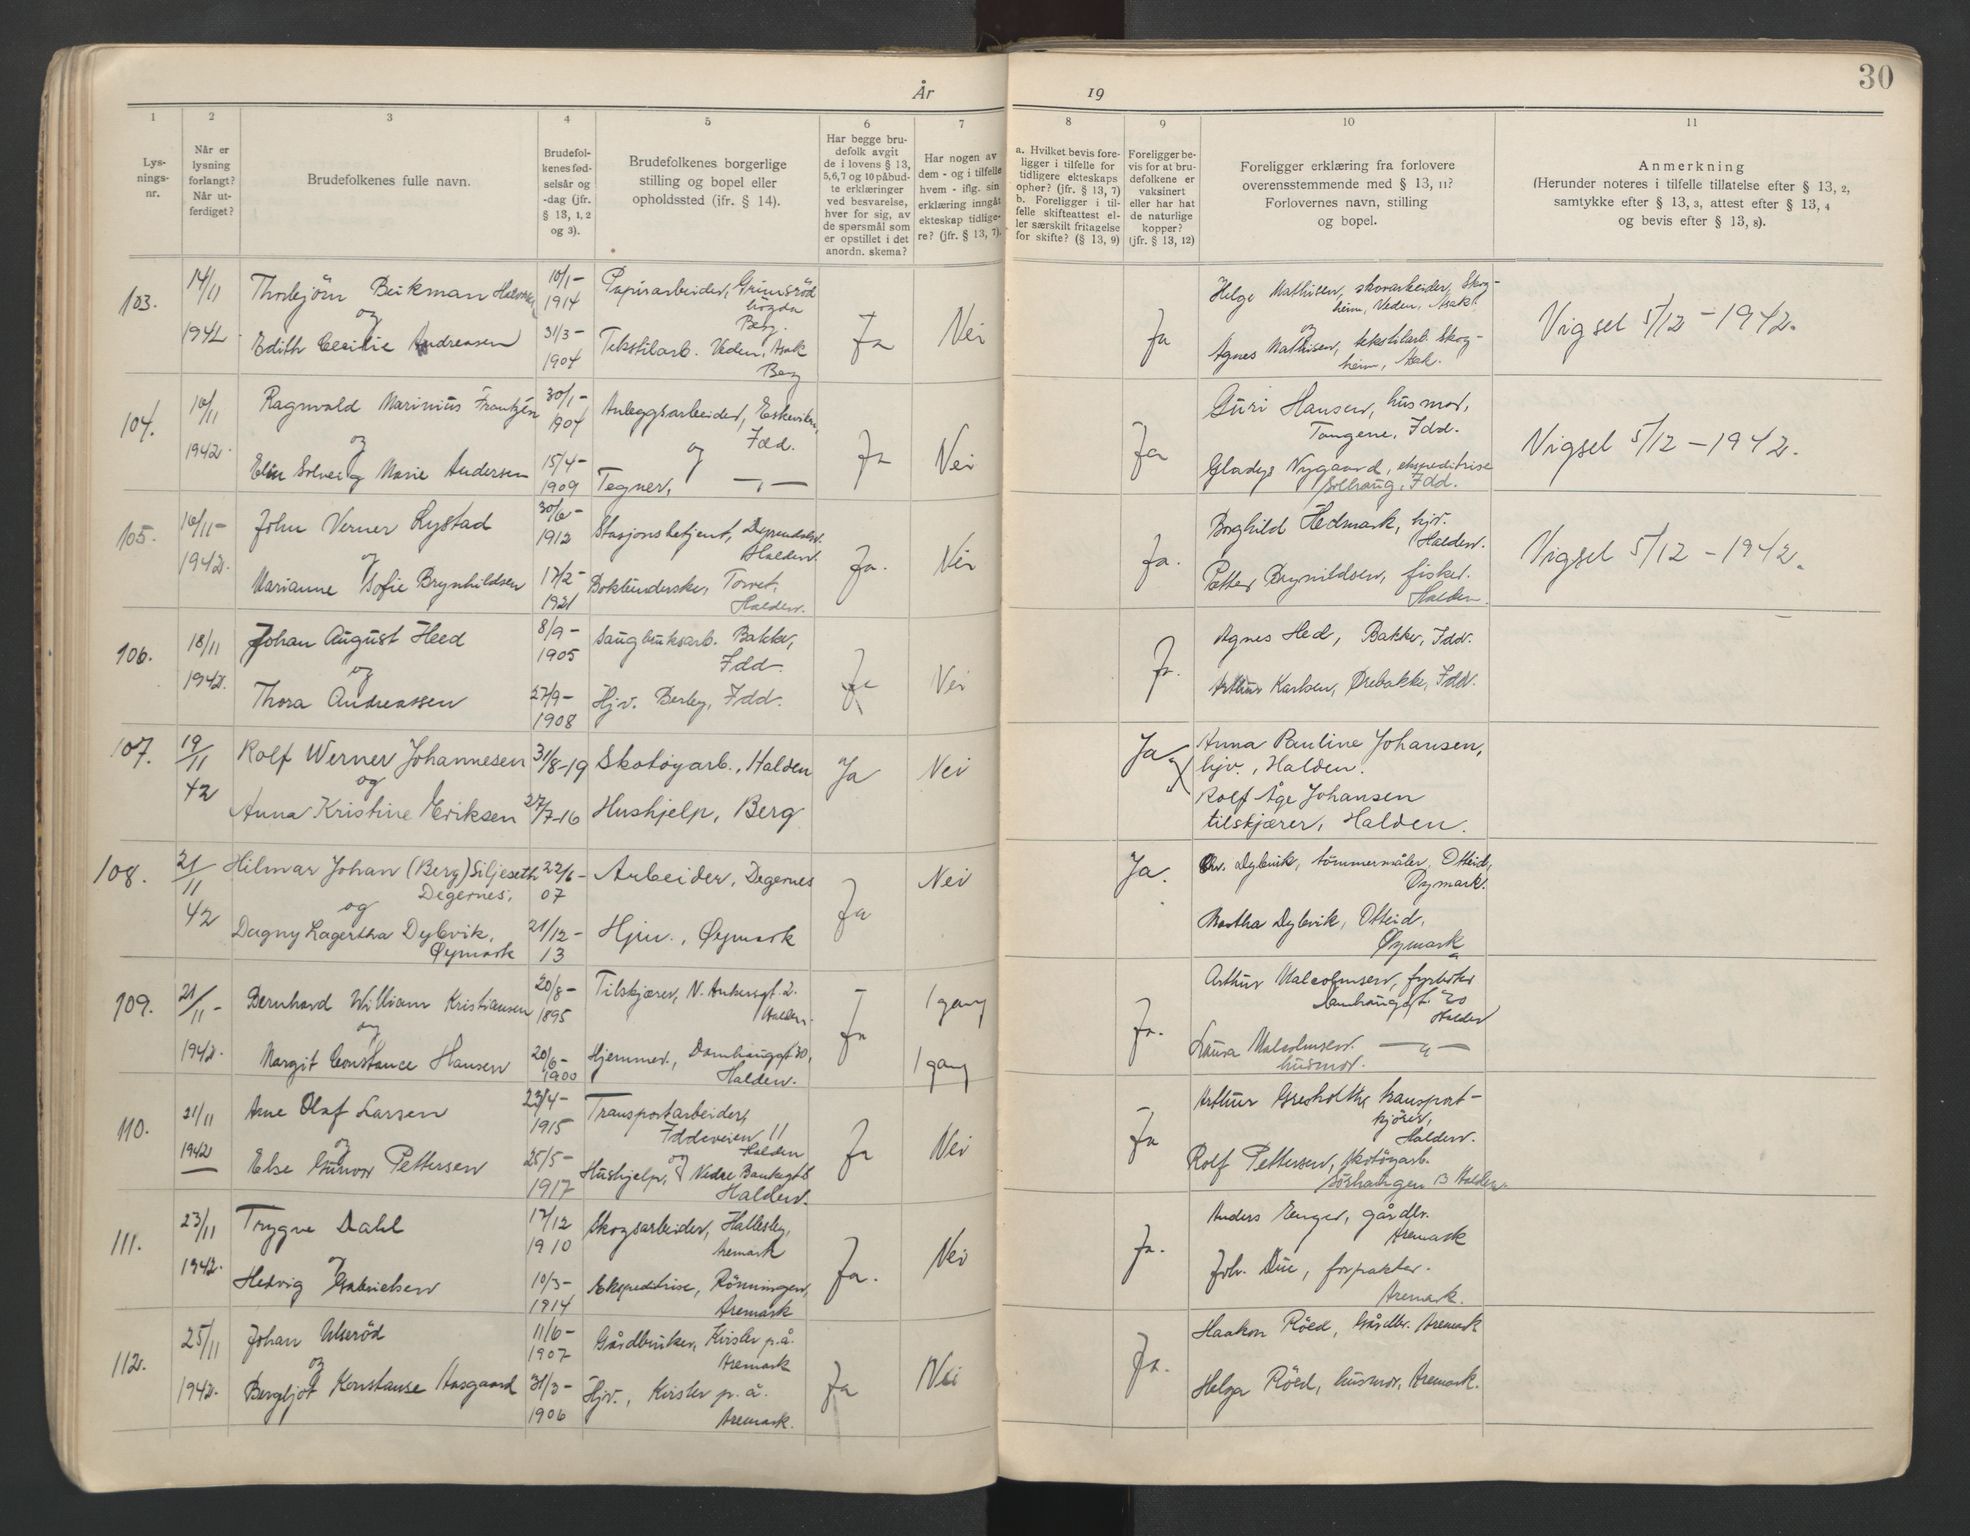 År
19
30
1
2
3
4
5
6
7
8
9
10
11
Lys-
nings-
nr.
Når er
lysning
forlangt?
Når ut-
ferdiget?
Brudefolkenes fulle navn.
Brudefol-
kenes fød-
selsår og
-dag (jfr.
§ 13, 1, 2
og 3).
Brudefolkenes borgerlige
stilling og bopel eller
opholdssted (jfr. § 14).
Har begge bru-
defolk avgit
de i lovens § 13,
5,6,7 og 10 påbud-
te erklæringer
ved besvarelse,
hver for sig, av
de spørsmål som
er opstillet i det
anordn. skema?
Har nogen av
dem - og i tilfelle
hvem - iflg. sin
erklæring inngåt
ekteskap tidlige-
re? (jfr. § 13, 7).
a. Hvilket bevis fore-
ligger i tilfelle for
tidligere ekteskaps
ophør? (jfr. § 13, 7)
b. Foreligger i til-
felle skifteattest el-
ler særskilt fritagelse
for skifte? (§ 13, 9)
Foreligger be-
vis for at bru-
defolkene er
vaksinert
eller har hat
de naturlige
kopper?
(jfr. § 13, 12)
Foreligger erklæring fra forlovere
overensstemmende med § 13, 11?
Forlovernes navn, stilling
og bopel.
Anmerkning
(Herunder noteres i tilfelle tillatelse efter § 13, 2,
samtykke efter § 13, 3, attest efter § 13, 4
og bevis efter § 13, 8).
103.
14/11
1942
Thorbjörn
og
Edith Cecilie Andreasen
10/1-
1914
31/3-
1904
Papirarbeider, Grimsröd
högda
Berg.
Tekstilarb. Veden, Asak
Berg
Ja
Nei
Ja
Helge Mathisen, skoarbeider, Skog-
heim, Veden, Asak.
og
Agnes Mathisen, tekstilarb. Skog-
heim, Asak.
Vigsel 5/12 - 1942.
104.
16/11
1942.
Ragnvald Marinius Frantzén
og
Elin Solveig Marie Andersen
30/1-
1904
15/4-
1909
Anleggsarbeider,
Idd.
og
Tegner, —„—
Ja
Nei
Ja
Guri Hansen, husmor,
Tangene, Idd.
Gladys Nygaard, ekspeditrise
Solhaug, Idd.
Vigsel 5/12 - 1942.
105.
16/11-
1942.
John Verner Lystad
og
Marianne Sofie Brynhildsen
30/6-
1912
17/2-
1921
Stasjonsbetjent,
Halden.
Torvet,
Halden.
Ja.
Nei
Ja.
Borghild Hedmark, hjv.
Halden.
Petter Brynildsen, fisker.
Halden.
Vigsel 5/12 - 1942.
106.
18/11
1942.
Johan August Heed
og
Thora Andreassen
8/9-
1905
27/9-
1908
Saugbruksarb. Bakke,
Idd.
Hjv. Berby, Idd.
Ja
Nei
Ja.
Agnes Hed, Bakke, Idd.
Arthur Karlsen, Ørebakke, Idd.
107.
19/11
42
Rolf Werner Johannesen
og
Anna Kristine Eriksen
31/8-19
27/7-16
Skotøyarb., Halden
Hushjelp, Berg
Ja
Nei
Ja
Anna Pauline Johansen,
hjv., Halden.
Rolf Åge Johansen
tilskjærer, Halden.
108.
21/11
42
Hilmar Johan (Berg) Siljeseth
Degernes.
og
Dagny Lagertha Dybvik,
Øymark
22/6-
07
21/12-
13
Arbeider, Degernes
Hjv., Øymark
Ja
Nei
Ja.
Chr. Dybvik, tömmermåler, Otteid,
Øymark.
Martha Dybvik, Otteid,
Øymark
109.
21/11-
1942.
Bernhard William Kristiansen
og
Margit Constance Hansen
20/8-
1895
20/6-
1900
Tilskjærer, N. Ankersgt. 2.
Halden.
Hjemmev., Damhauggt 30,
Halden.
Ja
1 gang
1 gang
Ja.
Arthur Malcolmsen, fyrböter
Damhauggt. 30
Halden
Laura Malcolmsen. —„—
husmor.
110.
21/11
1942
Arne Olaf Larsen
og
Else Gunvor Pettersen
23/4-
1915
25/5-
1917
Transportarbeider,
Iddeveien 11
Halden
og
Hushjelp, Nedre Bankegt 6
Halden.
Ja
Nei
Ja
Arthur Gresholth, transport-
kjörer,
Halden.
Rolf Pettersen, skotöyarb.
Sörhaugen 13 Halden.
111.
23/11
1942.
Trygve Dahl
og
Hedvig Gabrielsen
17/12
1910
10/3-
1914
Skogsarbeider, Hallesby,
Aremark
Ekspeditrise, Rönningen,
Aremark
Ja.
Nei
Ja.
Anders Enger, gårdbr.
Aremark
Joh. Due, forpakter.
Aremark.
112.
25/11
1942.
Johan Ulseröd
og
Bergljot Konstanse Aasgaard
11/6-
1907
31/3-
1906
Gårdbruker, Kirsler p.å.
Aremark
Hjv., Kirsler p.å.
Aremark.
Ja
Nei
Ja.
Haakon Röed, Gårdbr. Aremark
Helga Röed, husmor, Aremark.